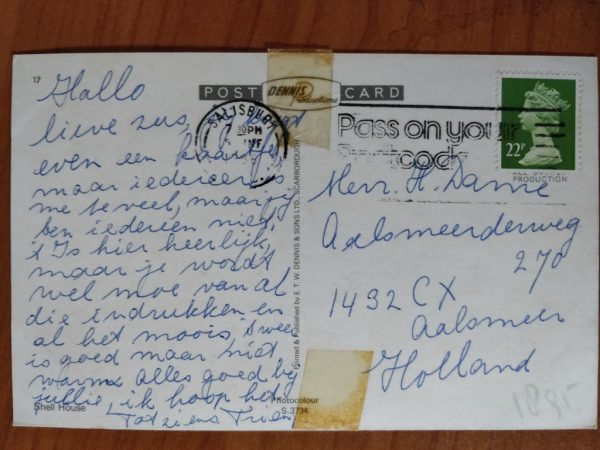 17
Hallo
lieve zus,
even een kaartje
maar iedereen is
me te veel, maar jy
ben iedereen niet,
t Is hier heerlijk,
maar je wordt
wel moe van al
die indrukken en
al het moois, 't weer
is goed maar niet
warm, alles goed by
jullie, ik hoop het
Tot ziens Trien
Shell House
POST CARD
DENNIS
Productions
Printed & Published by E. T. W. DENNIS & SONS LTD., SCARBOROUGH
Photocolour
S.3734
SALISBURY
7 30PM
Pass on your
Postcode
22P
PRODUCTION
Herr. H. Dame
Aalsmeerderweg
270
1432 CX
Aalsmeer
Holland
1985